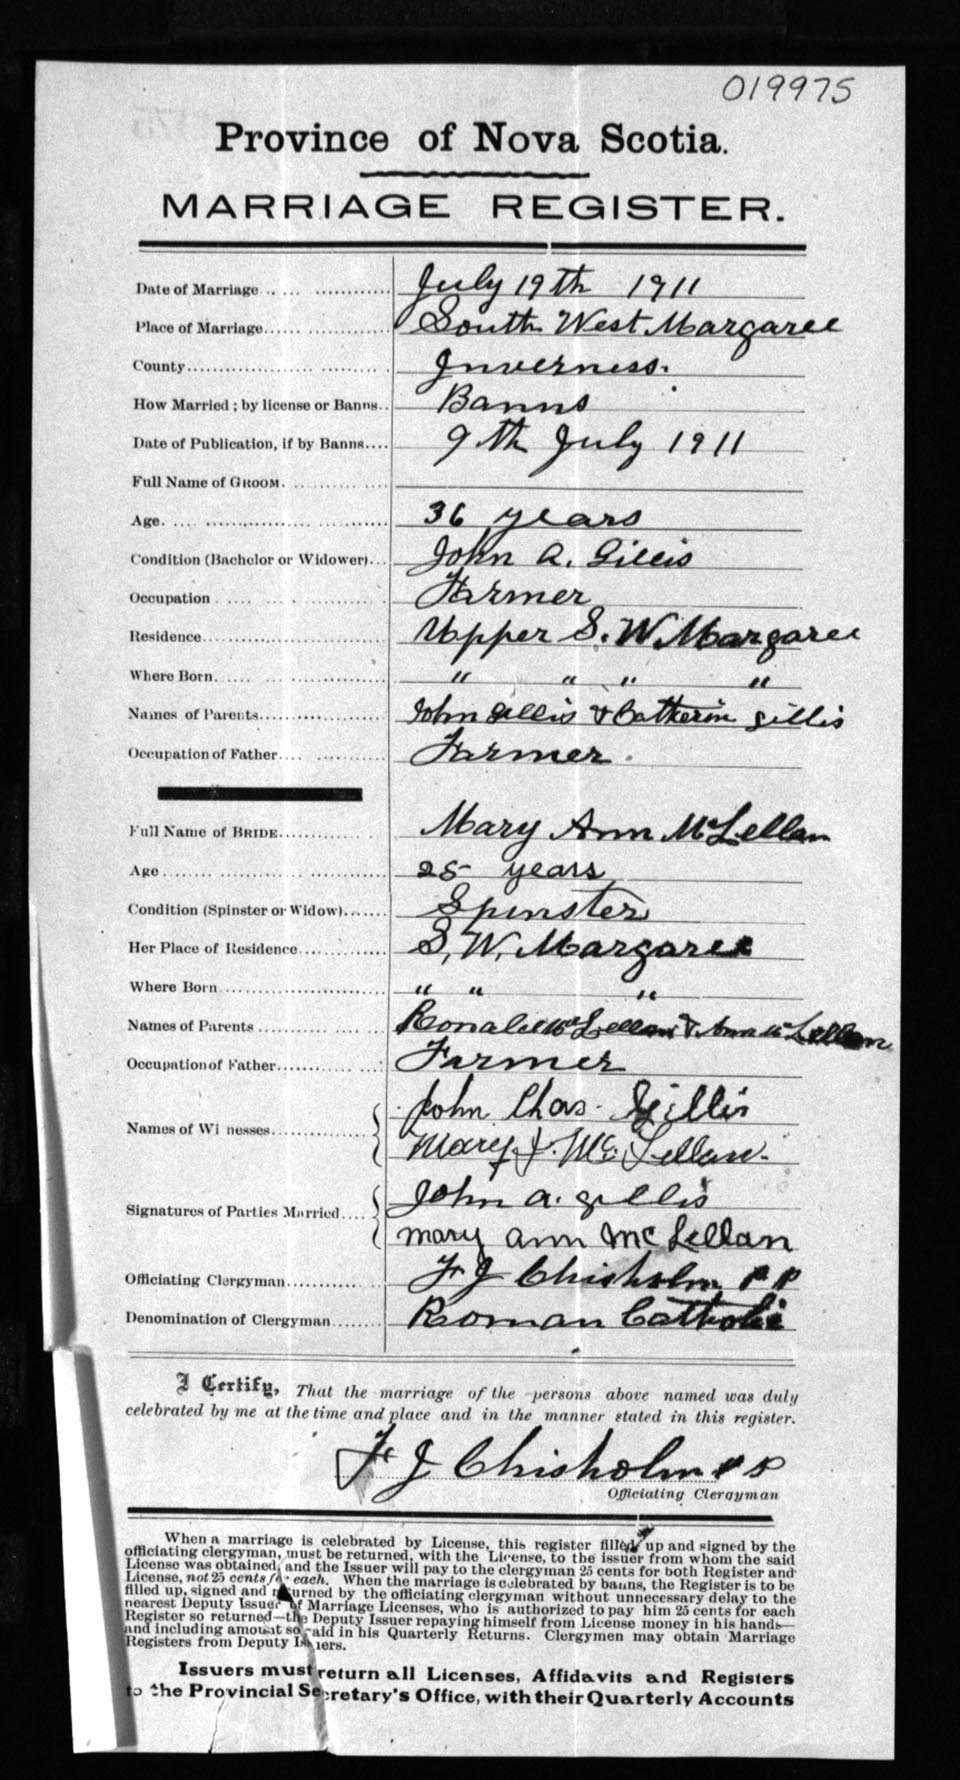 019975
Province of Nova Scotia.
MARRIAGE REGISTER.
Date of Marriage July 19th 1911
Place of Marriage South West Margaree
County Inverness.
How Married; by license or Banns Banns
Date of Publication, if by Banns 9th July 1911
Full Name of GROOM.
Age. 36 years
Condition (Bachelor or Widower) John A. Gillis
Occupation Farmer
Residence Upper S. W. Margaree
Where Born. " " " "
Names of Parents John Gillis & Catherin Gillis
Occupation of Father Farmer
Full Name of BRIDE Mary Ann McLellan
Age 25 years
Condition (Spinster or Widow) Spinster
Her Place of Residence S. W. Margaree
Where Born " " "
Names of Parents Ronald McLellan & Ann McLellan
Occupation of Father Farmer
Names of Wi nesses John Chas. Gillis
Mary J. McLellan.
Signatures of Parties Married John A. Gillis
Mary Ann McLellan
Officiating Clergyman F J Chisholm P P
Denomination of Clergyman Roman Catholic
I Certify, That the marriage of the persons above named was duly
celebrated by me at the time and place and in the manner stated in this register.
F J Chisholm P P
Officiating Clergyman
When a marriage is celebrated by License, this register filled up and signed by the
officiating clergyman, must be returned, with the License, to the issuer from whom the said
License was obtained, and the Issuer will pay to the clergyman 25 cents for both Register and
License, not 25 cents for each. When the marriage is celebrated by banns, the Register is to be
filled up, signed and returned by the officiating clergyman without unnecessary delay to the
nearest Deputy Issuer of Marriage Licenses, who is authorized to pay him 25 cents for each
Register so returned—the Deputy Issuer repaying himself from License money in his hands—
and including amount so paid in his Quarterly Returns. Clergymen may obtain Marriage
Registers from Deputy Issuers.
Issuers must return all Licenses, Affidavits and Registers
to the Provincial Secretary's Office, with their Quarterly Accounts